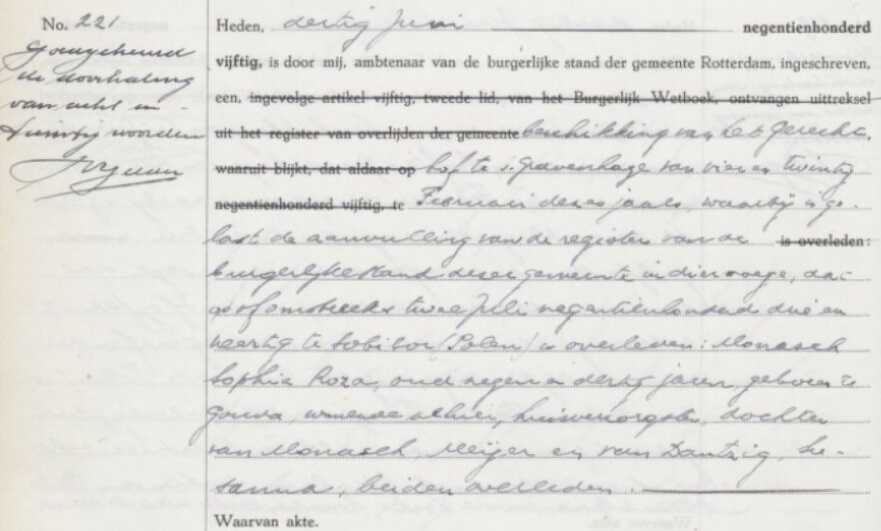 No. 221
Goedgekeurd
de doorhaling
van acht en
twintig woorden
Heden, dertig Juni negentienhonderd
vijftig, is door mij, ambtenaar van de burgerlijke stand der gemeente Rotterdam, ingeschreven,
een, ingevolge artikel vijftig, tweede lid, van het Burgerlijk Wetboek, ontvangen uittreksel
uit het register van overlijden der gemeente beschikking van het Gerechts
waaruit blijkt, dat aldaar op hof te s-Gravenhage van vier en twintig
negentienhonderd vijftig, te Februari dezes jaars, waarbij is ge-
last de aanvulling van de registers van de is overleden:
burgerlijke stand dezer gemeente in dier voege, dat
op of omstreeks twee Juli negentienhonderd drie en
veertig te Sobibor (Polen) is overleden: Monasch
Sophia Roza, oud negen en dertig jaren, geboren te
Gouda, wonende alhier, huisverzorgster, dochter
van Monasch, Meijer en van Dantzig, Su-
sanna, beiden overleden.
Waarvan akte.